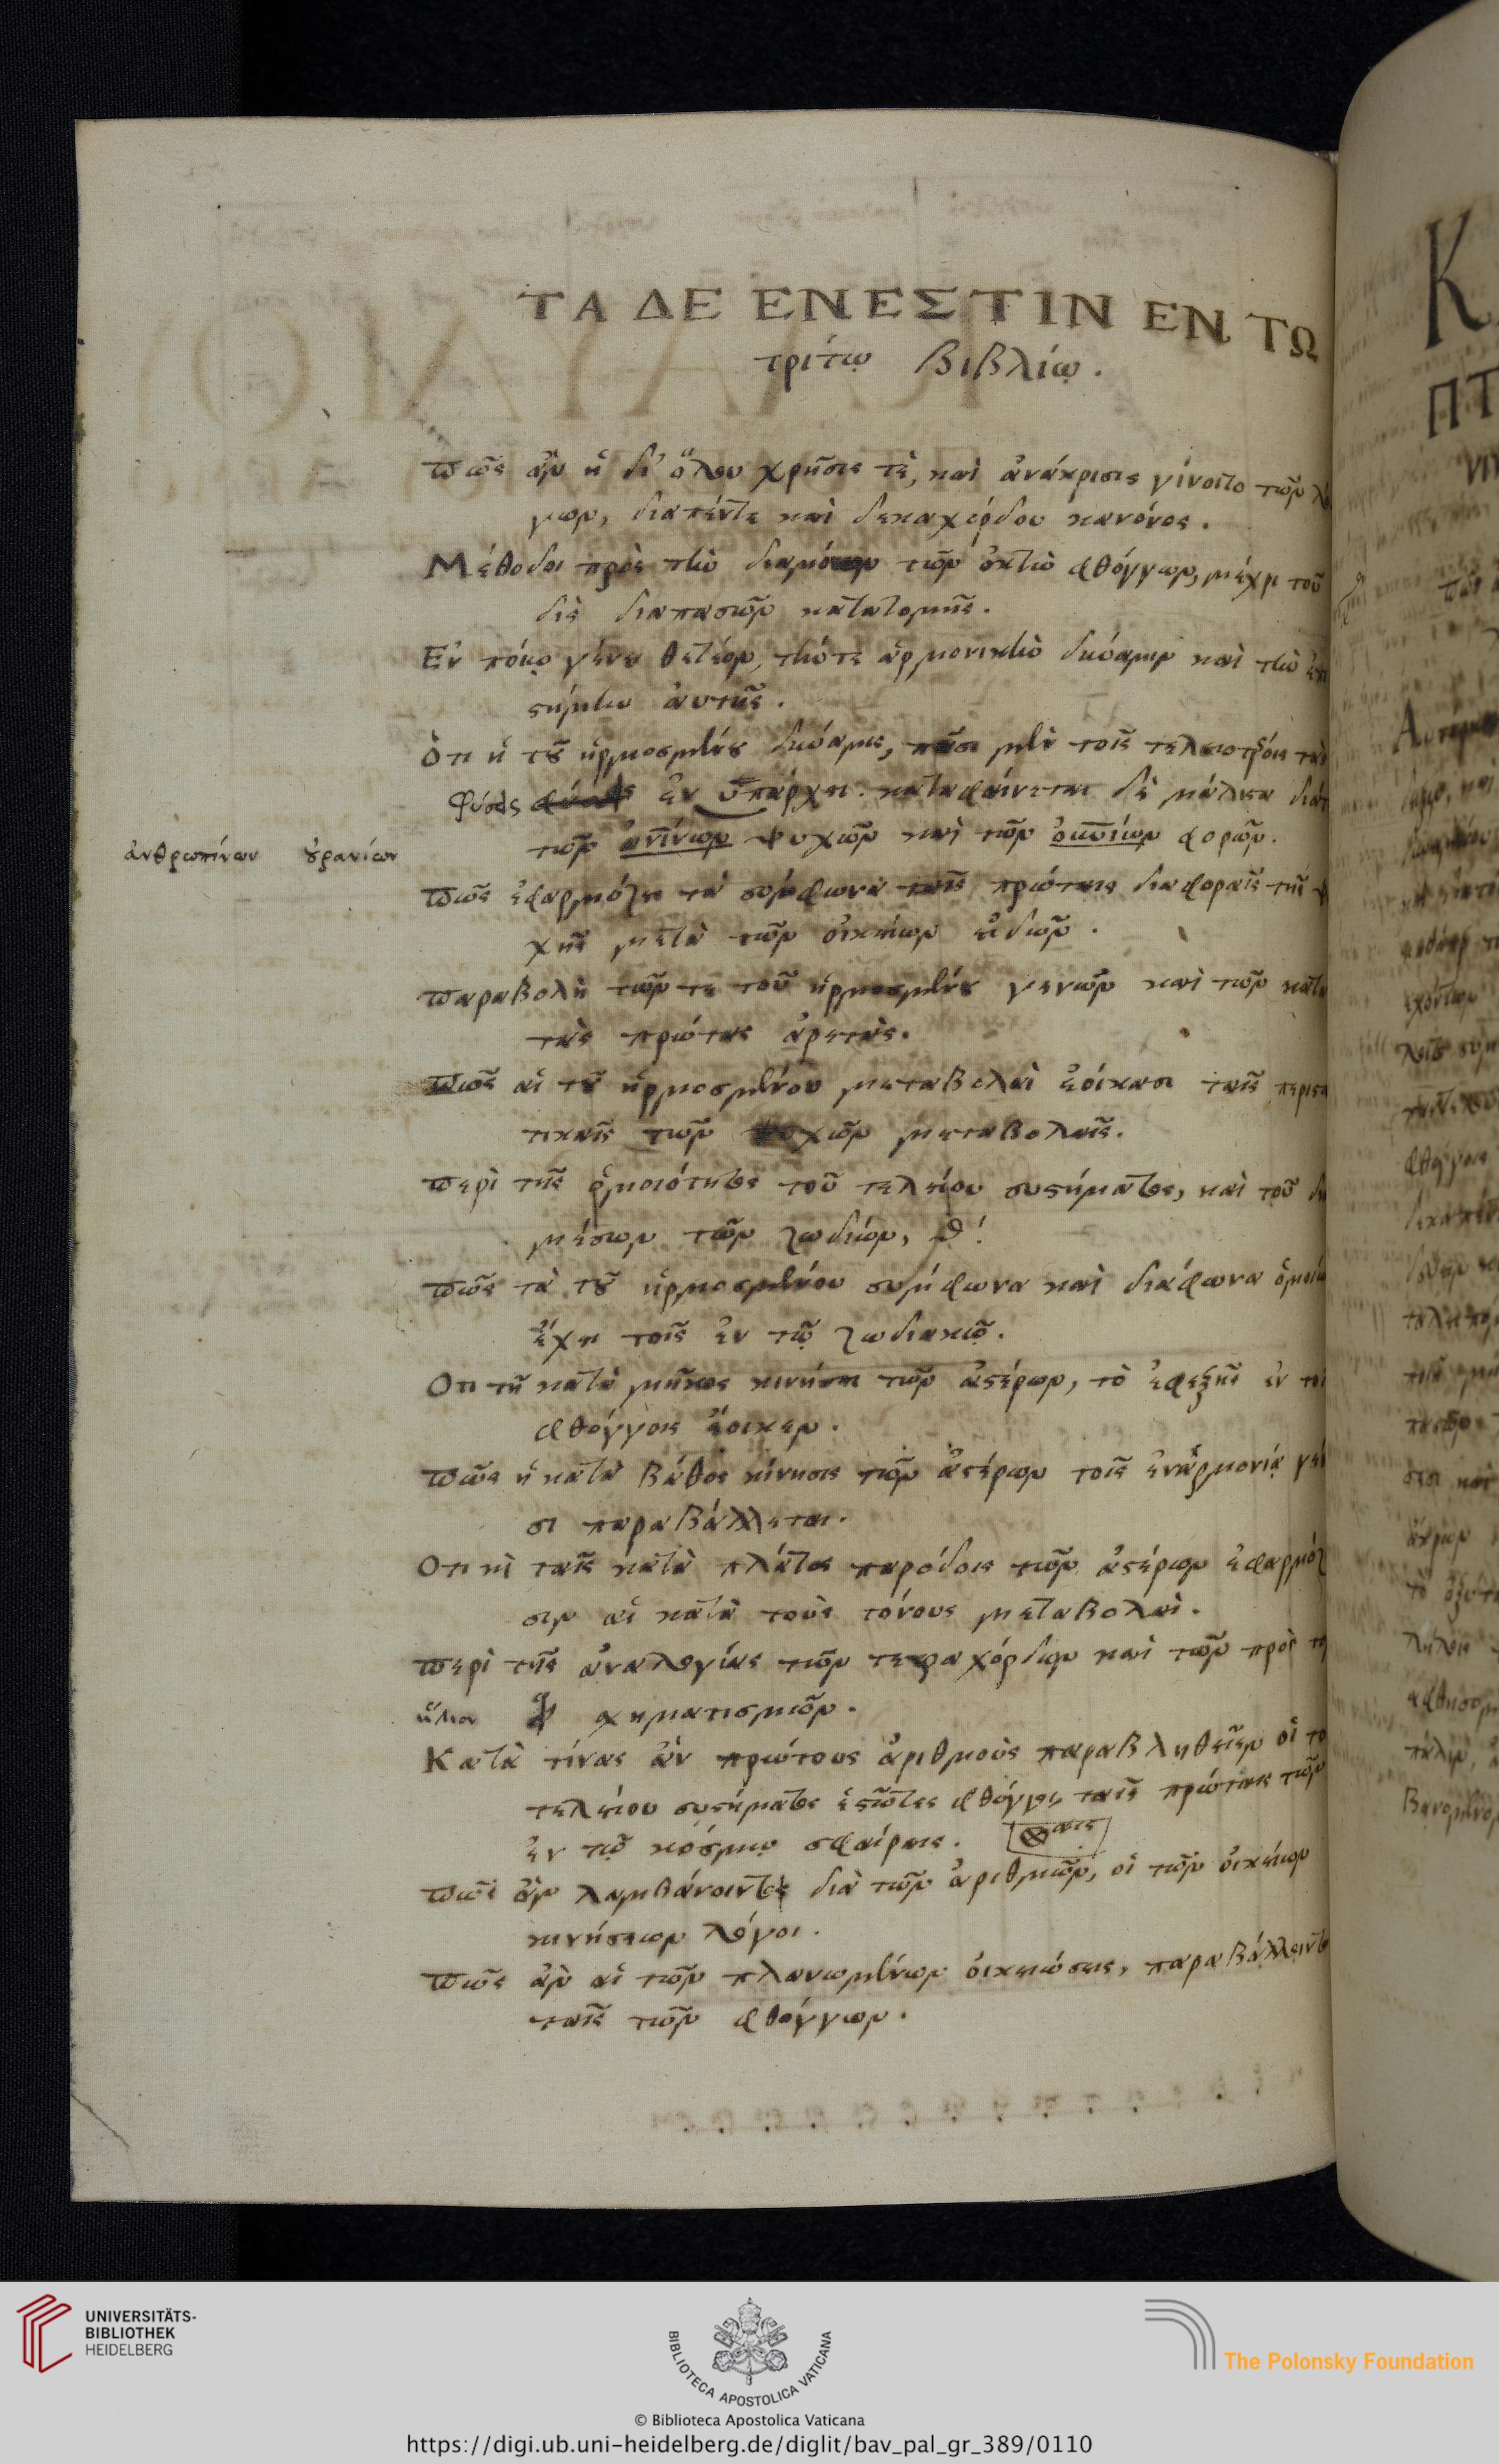 ΤΑ ΔΕ ΕΝΕΣΤΙΝ ΕΝ ΤΩ
τρίτῳ βιβλίῳ.
πῶς ἂν ἡ δι' ὅλου χρῆσις τὲ, καὶ ἀνάκρισις γίνοιτο τῶν λό
γων, διαπέντε καὶ δεκαχόρδου κανόνος.
Μέθοδοι πρὸς τὴν τῶν ὀκτὼ φθόγγων, μέχρι τοῦ
δὶς διαπασῶν κατατομῆς.
Ἐν ποίῳ γένει θετέον, τήν τε ἁρμονικὴν δύναμιν καὶ τὴν ἐπι
στήμην αὐτῆς.
Ὅτι ἡ τοῦ ἡρμοσμένου δύναμις, πᾶσι μὲν τοῖς τελειοτέροις τὰς
φύσεις ἐνυπάρχει. καταφαίνεται δὲ μάλιστα διὰ
τῶν ἀνίνων ψυχῶν καὶ τῶν οὐνίων φορῶν.
ἀνθρωπίνων οὐρανίων
πῶς ἐφαρμόζει τὰ σύμφωνα ταῖς πρώταις διαφοραῖς τῆς ψυ
χῆς μετὰ τῶν οἰκείων εἰδῶν.
παραβολὴ τῶν τε τοῦ ἡρμοσμένου γενῶν καὶ τῶν κατὰ
τὰς πρώτας ἀρετὰς.
πῶς αἱ τοῦ ἡρμοσμένου μεταβολαὶ ἐοίκασι ταῖς περιστα
τικαῖς τῶν ψυχῶν μεταβολαῖς.
περὶ τῆς ὁμοιότητος τοῦ τελείου συστήματος, καὶ τοῦ διὰ
μέσων τῶν ζωδίων, θ'.
πῶς τὰ τοῦ ἡρμοσμένου σύμφωνα καὶ διάφωνα ὁμοίως
ἔχει τοῖς ἐν τῷ ζωδιακῷ.
Ὅτι τῇ κατὰ μῆκος κινήσει τῶν ἀστέρων, τὸ ἐφεξῆς ἐν τοῖς
φθόγγοις ἔοικεν.
πῶς ἡ κατὰ βάθος κίνησις τῶν ἀστέρων τοῖς ἐν ἁρμονίᾳ γένε
σι παραβάλλεται.
Ὅτι καὶ ταῖς κατὰ πλάτος παρόδοις τῶν ἀστέρων ἐφαρμόζου
σιν αἱ κατὰ τοὺς τόνους μεταβολαὶ.
περὶ τῆς ἀναλογίας τῶν τετραχόρδων καὶ τῶν πρὸς τὸν
ἥλιον σχηματισμῶν.
Κατὰ τίνας ἂν πρώτους ἀριθμοὺς παραβληθεῖεν οἱ τοῦ
τελείου συστήματος ἑστῶτες φθόγγοι, ταῖς πρώταις τῶν
ἐν τῷ κόσμῳ σφαίραις.
πῶς ἂν λαμβάνοιντο διὰ τῶν ἀριθμῶν, οἱ τῶν οἰκείων
κινήσεων λόγοι.
πῶς ἂν αἱ τῶν πλανωμένων οἰκειώσεις, παραβάλλοιντο
ταῖς τῶν φθόγγων.
UNIVERSITÄTS-
BIBLIOTHEK
HEIDELBERG
BIBLIOTECA APOSTOLICA VATICANA
The Polonsky Foundation
© Biblioteca Apostolica Vaticana
https://digi.ub.uni-heidelberg.de/diglit/bav_pal_gr_389/0110